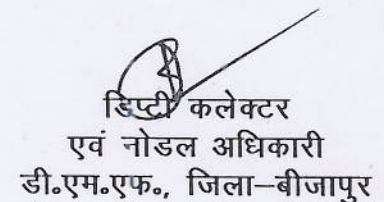 डिप्टी कलेक्टर
एवं नोडल अधिकारी
डी॰एम॰एफ॰, जिला–बीजापुर